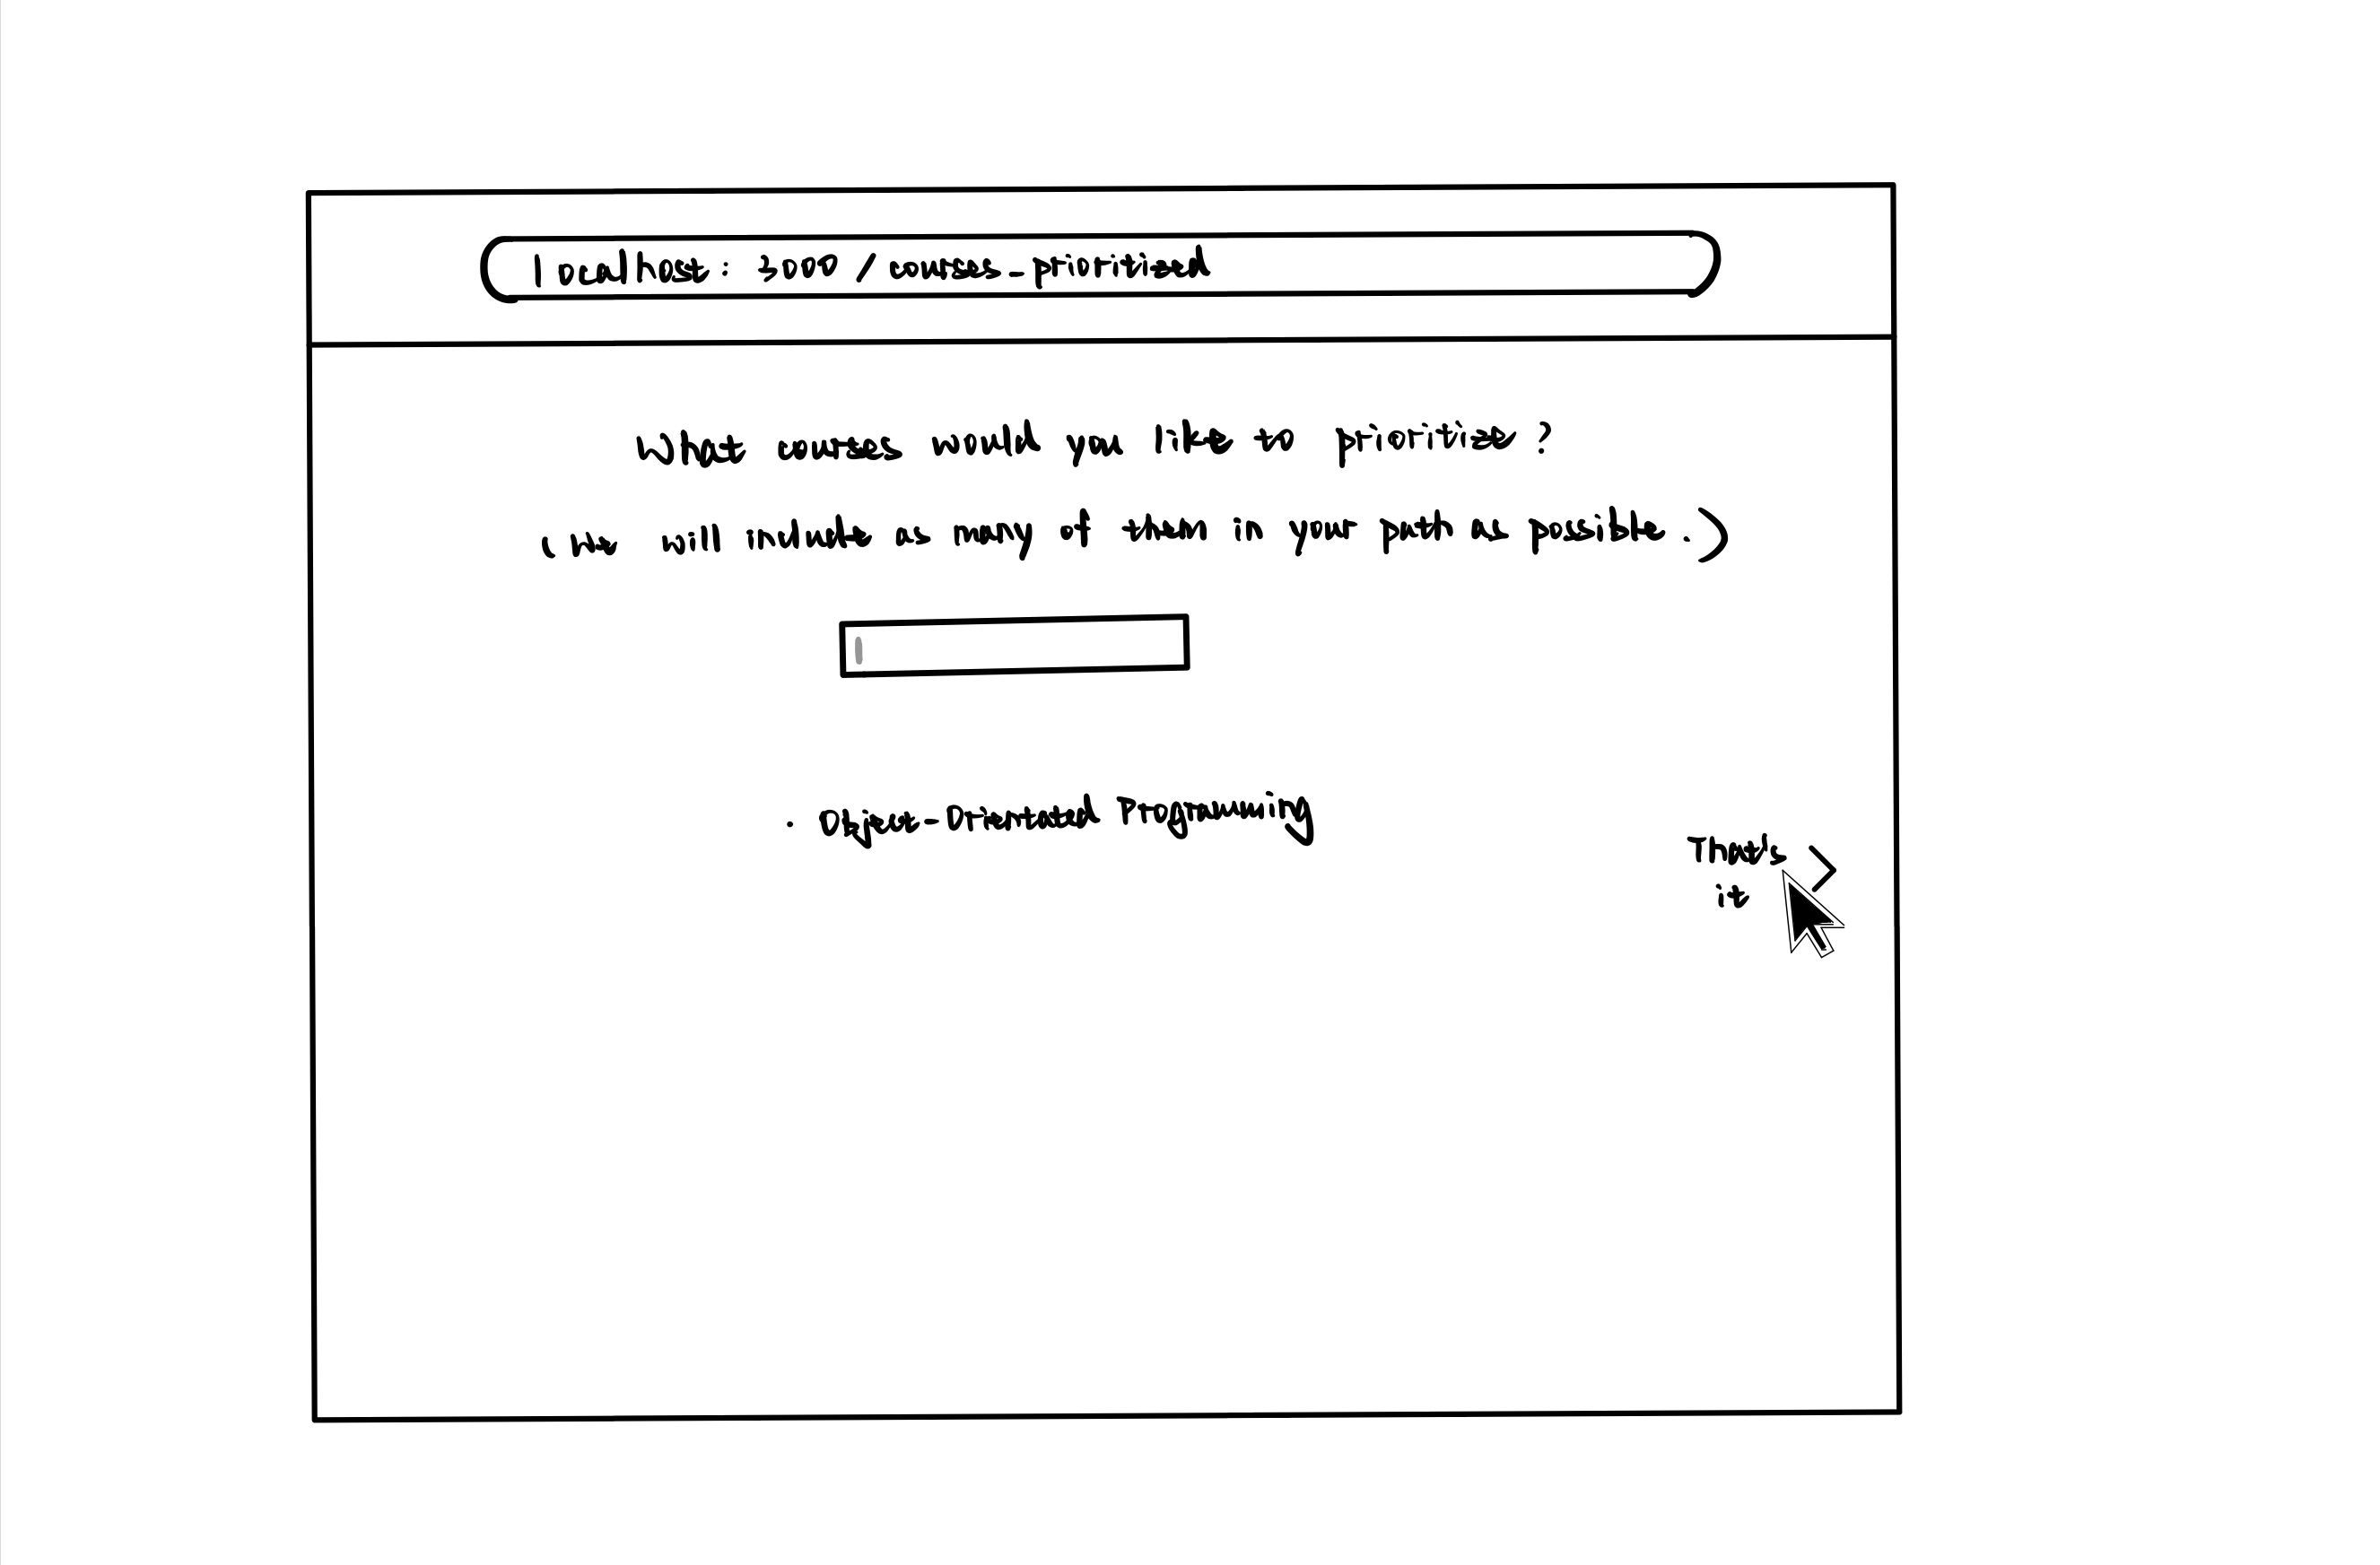 localhost:3000/courses_prioritized
What courses would you like to prioritize?
(We will include as many of them in your path as possible.)
· Object-Orientated Programming
That's
it